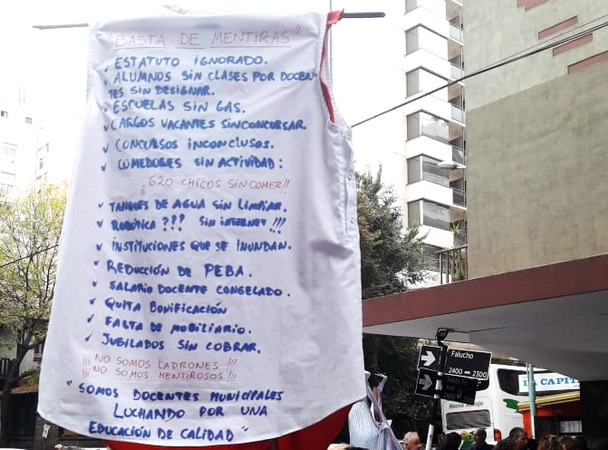 "BASTA DE MENTIRAS"
✓ ESTATUTO IGNORADO.
✓ ALUMNOS SIN CLASES POR DOCEN-
TES SIN DESIGNAR.
✓ ESCUELAS SIN GAS.
✓ CARGOS VACANTES SIN CONCURSAR.
✓ CONCURSOS INCONCLUSOS.
✓ COMEDORES SIN ACTIVIDAD:
¡¡620 CHICOS SIN COMER!!
✓ TANQUES DE AGUA SIN LIMPIAR.
✓ ROBÓTICA ??? SIN INTERNET !!!
✓ INSTITUCIONES QUE SE INUNDAN.
✓ REDUCCIÓN DE PEBA.
✓ SALARIO DOCENTE CONGELADO.
✓ QUITA BONIFICACIÓN
✓ FALTA DE MOBILIARIO.
✓ JUBILADOS SIN COBRAR.
¡¡¡NO SOMOS LADRONES !!!
¡¡¡NO SOMOS MENTIROSOS !!!
"SOMOS DOCENTES MUNICIPALES
LUCHANDO POR UNA
EDUCACIÓN DE CALIDAD"
Falucho
2400 2300
LA CAPIT